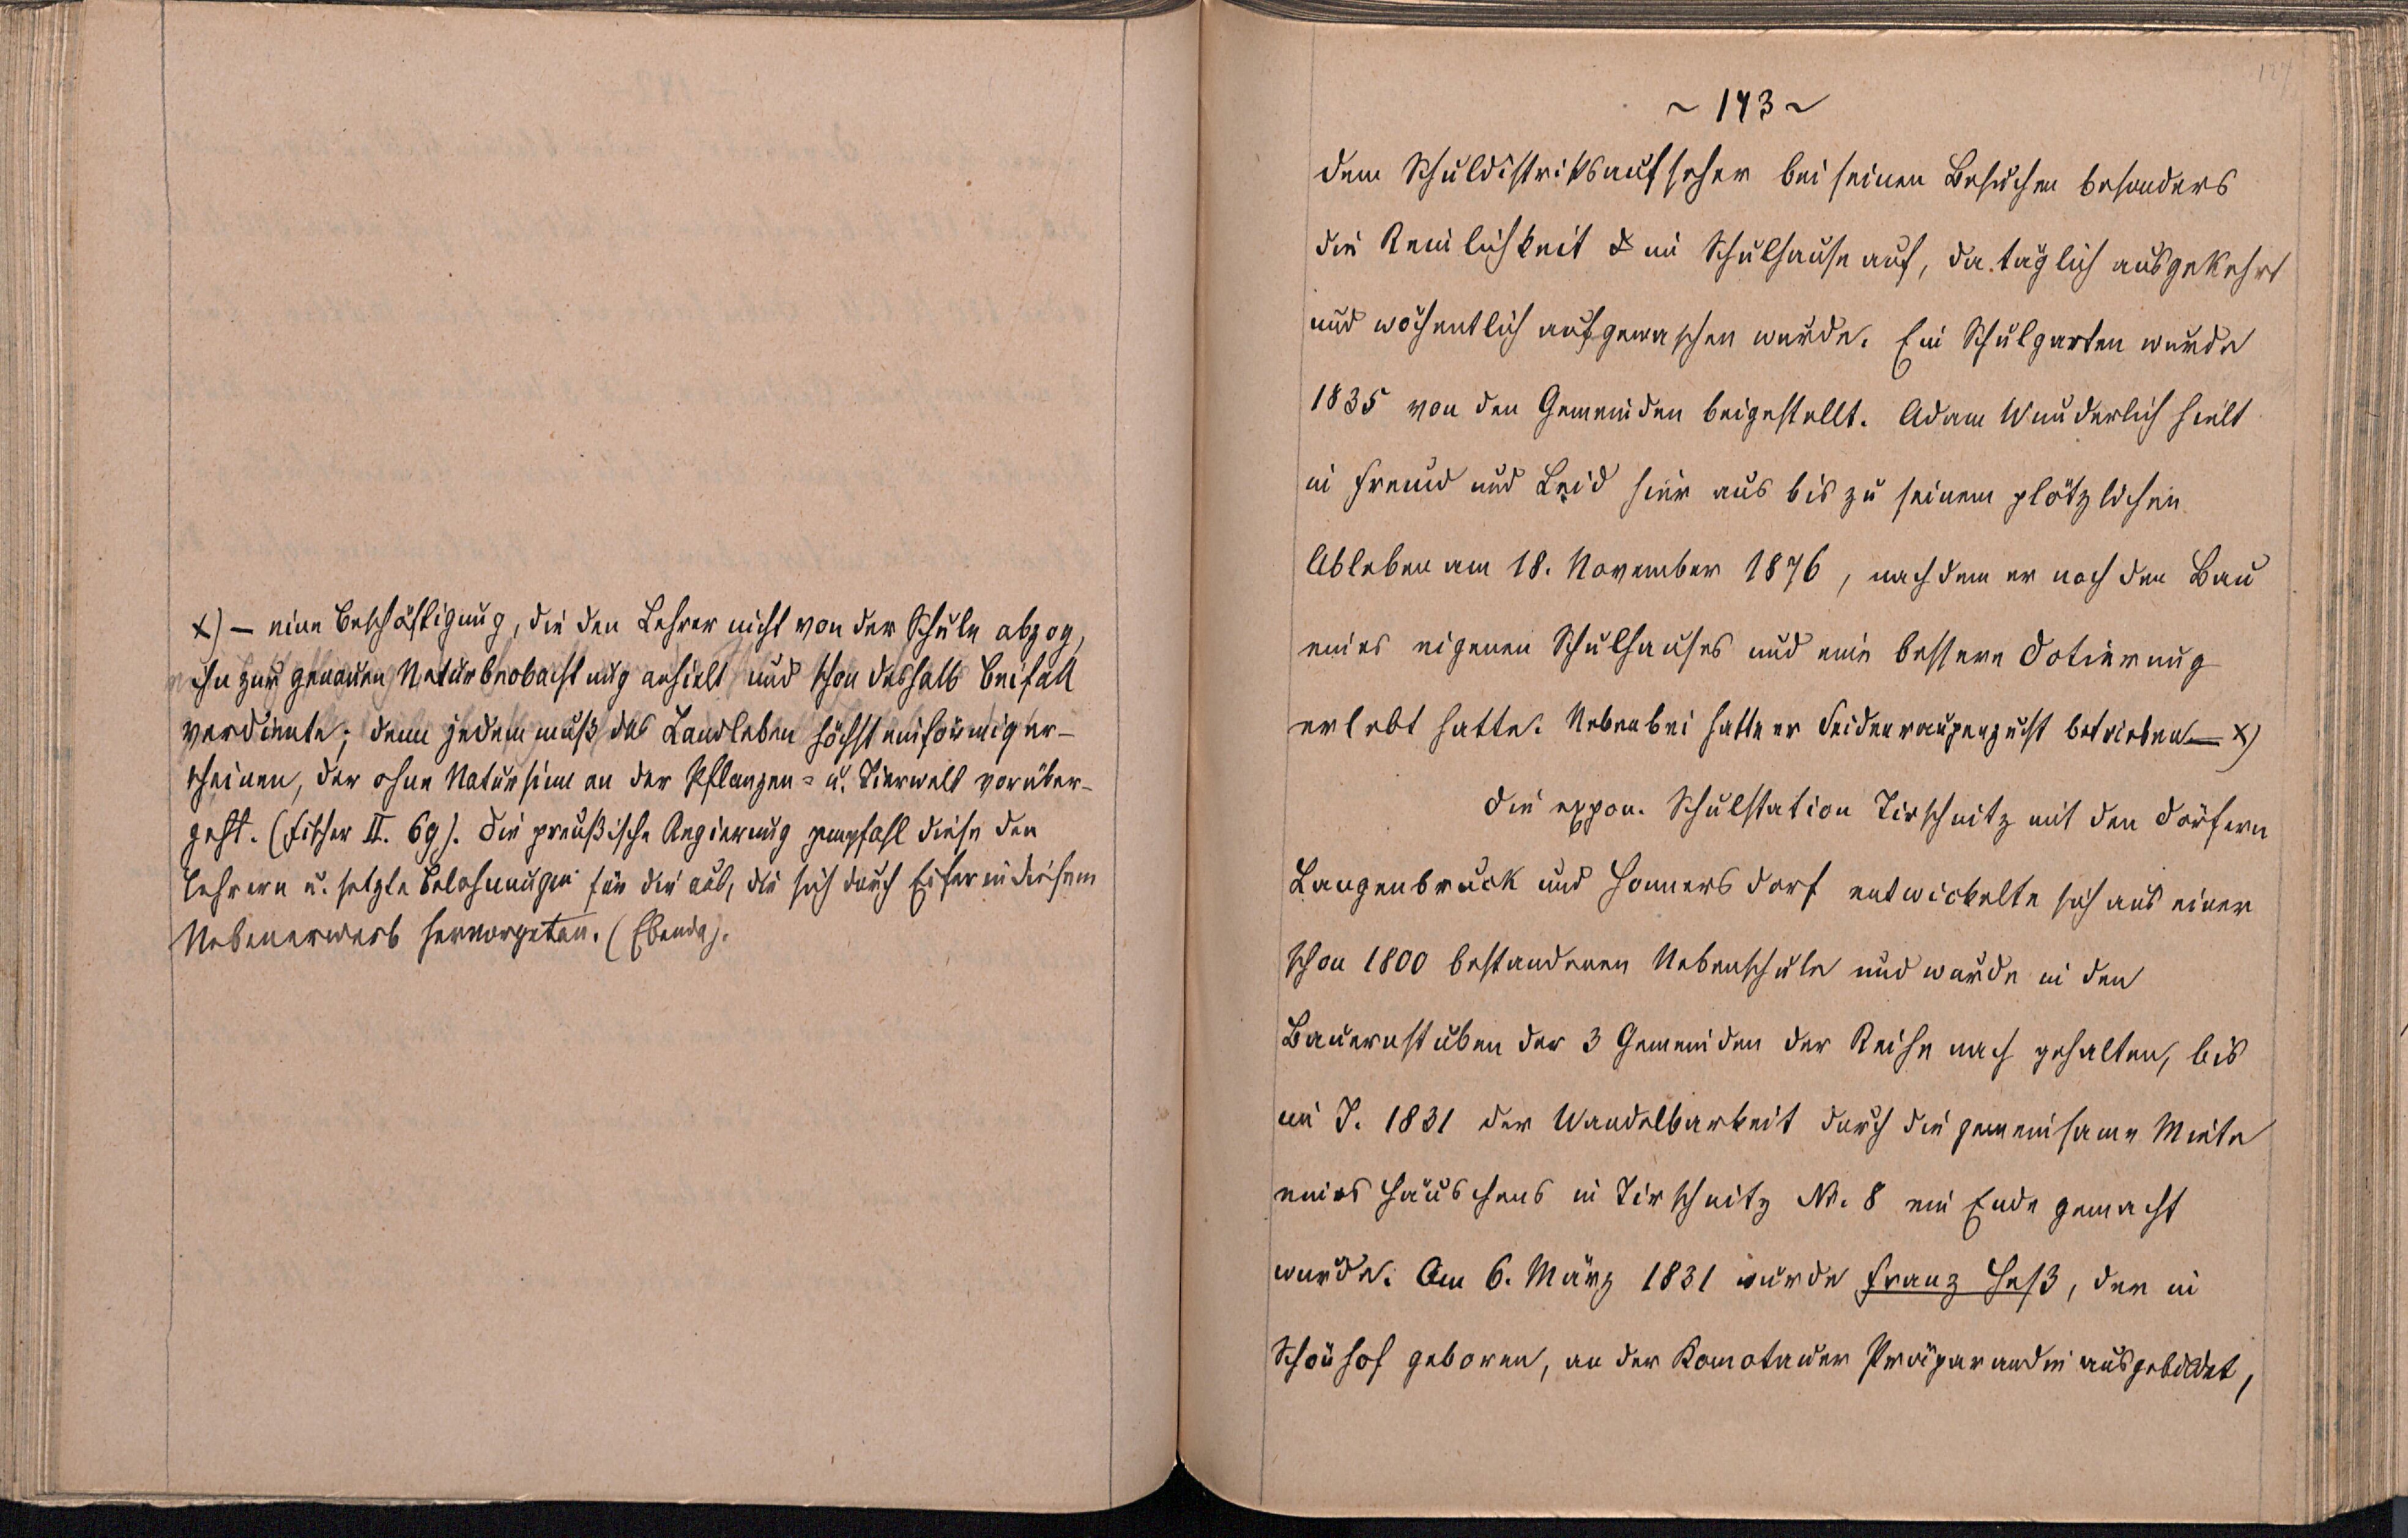 x) — eine Beschäftigung, die den Lehrer nicht von der Schule abzog,
ihn zur genauen Naturbeobachtung anhielt und schon deshalb Beifall
verdiente; denn jedem muß das Landleben höchst einförmig er-
scheinen, der ohne Natursinn an der Pflanzen- u. Tierwelt vorüber-
geht. (Fischer II. 69). Die preußische Regierung empfahl diese den
Lehrern u. setzte Belohnungen für die aus, die sich durch Eifer in diesem
Nebenerwerb hervorgetan. (Ebenda).
127
~ 143 ~
dem Schuldistriktsaufseher bei seinen Besuchen besonders
die Reinlichkeit im Schulhause auf, da täglich ausgekehrt
und wöchentlich aufgewaschen wurde. Ein Schulgarten wurde
1835 von den Gemeinden beigestellt. Adam Wunderlich hielt
in Freud und Leid hier aus bis zu seinem plötzlichen
Ableben am 18. November 1876, nachdem er noch den Bau
eines eigenen Schulhauses und eine bessere Dotierung
erlebt hatte. Nebenbei hatte er Seidenraupenzucht betrieben — x)
Die expon. Schulstation Tirschnitz mit den Dörfern
Langenbruck und Sonnersdorf entwickelte sich aus einer
schon 1800 bestandenen Nebenschule und wurde in den
Bauernstuben der 3 Gemeinden der Reihe nach gehalten, bis
im J. 1831 der Wandelbarkeit durch die gemeinsame Miete
eines Häuschens in Tirschnitz Nr. 8 ein Ende gemacht
wurde. Am 6. März 1831 wurde Franz Heß, der in
Schönhof geboren, an der Komotauer Präparandie ausgebildet,